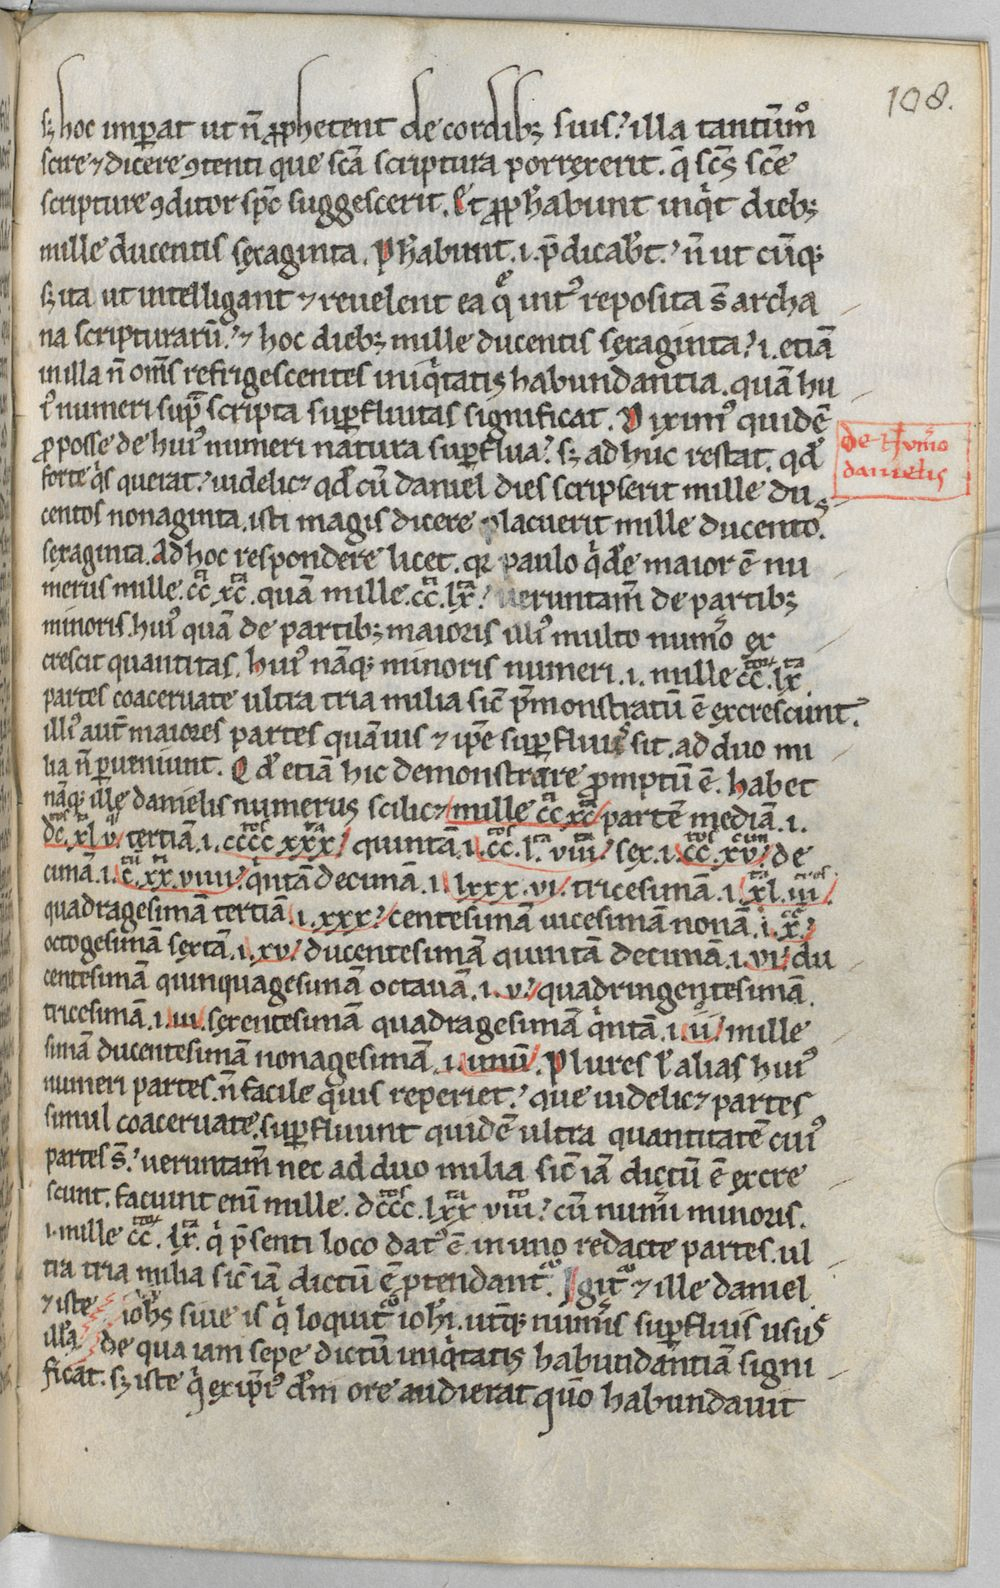 108.
sꝫ hoc imꝑat ut n̄ ꝓphetent de cordibꝫ suis? illa tantūmͦ
scire ⁊ dicere ꝯtenti que scā scriptura porrexerit. q̄ sc̄s sc̄e
scripture ꝯditor sp̄c suggescerit. Et ꝓphabunt inqͥt diebꝫ
mille ducentis sexaginta. Ph̄abunt .i. p̄dicabt̄? n̄ ut cūqꝫ
sꝫ ita ut intelligant ⁊ reuelent ea q̄ intꝰ reposita s̄ archa
na scripturarū? ⁊ hoc diebꝫ mille ducentis sexaginta? .i. etiā
in illa n̄ om̄s refrigescentes iniqͥtatis habundantia. quā hu
iꝰ numeri sup̄ scripta suꝑfluitas significat. Diximꝰ quidē
ꝓ posse de huiꝰ numeri natura suꝑflua? sꝫ adhuc restat. qd̄
de numͦo
danielis
forte qͥs querat? uidelicꝫ qd̄ cū daniel dies scripserit mille du
centos nonaginta. isti magis dicere placuerit mille ducentos
sexaginta. Ad hoc respondere licet. qꝛ paulo qͥde maior ē nu
merus mille .cc. xc. quā mille .cc. lx? ueruntam̄ de partibꝫ
minoris huiꝰ quā de partibꝫ maioris illiꝰ multo numͦo ex
crescit quantitas. huiꝰ nāqꝫ minoris numeri .i. mille cc. lx
partes coaceruate ultra tria milia sic̄ p̄monstratū ē excrescunt?
illiꝰ aut̄ maiores partes quāuis ⁊ ip̄e suꝑfluꝰ sit. ad duo mi
lia n̄ ꝑueniunt. Qd̄ etiā hic demonstrare ꝓmptū ē. habet
nāqꝫ ille danielis numerus scilicꝫ mille cc xc partē mediā .i.
dc. xl v tertiā .i. cccc xxx quintā .i. cc. l. viii sex .i. cc. xv de
cimā .i. c. xx. viiii qͥntādecimā .i. lxxx. vi. tricesimā .i. xl. iii
quadragesimā tertiā .i. xxx? centesimā uicesimā nonā .i. x
octogesimā sextā .i. xv ducentesimā quintā decimā .i. vi du
centesimā quinquagesimā octauā .i. v? quadringentesimā
tricesimā .i. iii sexentesimā quadragesimā qͥntā .i. ii mille
simā ducentesimā nonagesimā .i. unū. Plures l̄ alias huiꝰ
numeri partes n̄ facile quis reperiet? que uidelicꝫ partes
simul coaceruate suꝑfluunt quidē ultra quantitatē cuiꝰ
partes s̄? ueruntam̄ nec ad duo milia sic̄ iā dictū ē excre
scunt. faciunt enī mille. dccc. lxx viii? cū numi minoris
.i. mille cc. lx. qͥ p̄senti loco datꝰ ē in uno redacte partes ul
tra tria milia sic̄ iā dictū ē p̄tendant. Igit ⁊ ille daniel
⁊ iste ioh̄s siue is qͥ loquit ioh̄i. utqꝫ num̄is suꝑfluis usus
illā de qua iam sepe dictū iniqͥtatis habundantiā signi
ficat. sꝫ iste qͥ ex ipͥꝰ dn̄i ore audierat qūo habundauit